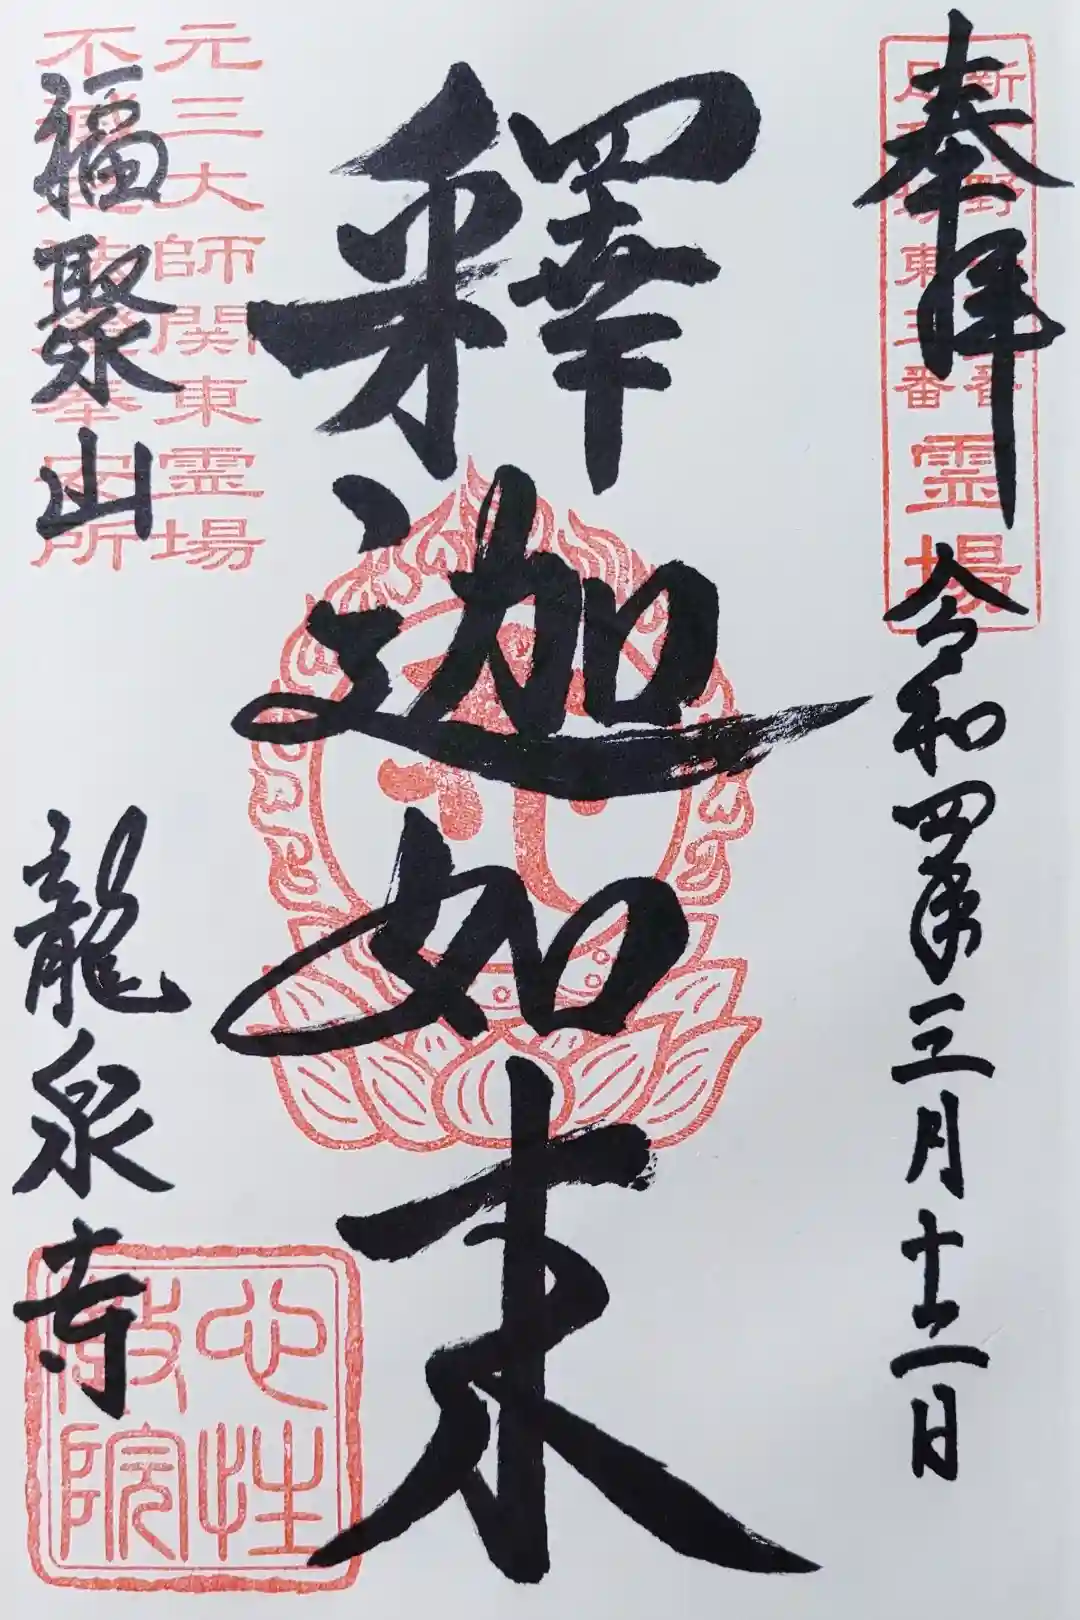 奉拝
令和四年三月十二日
釋迦如来
元三大師関東霊場
福聚山
龍泉寺
東三番
霊場
心性
院